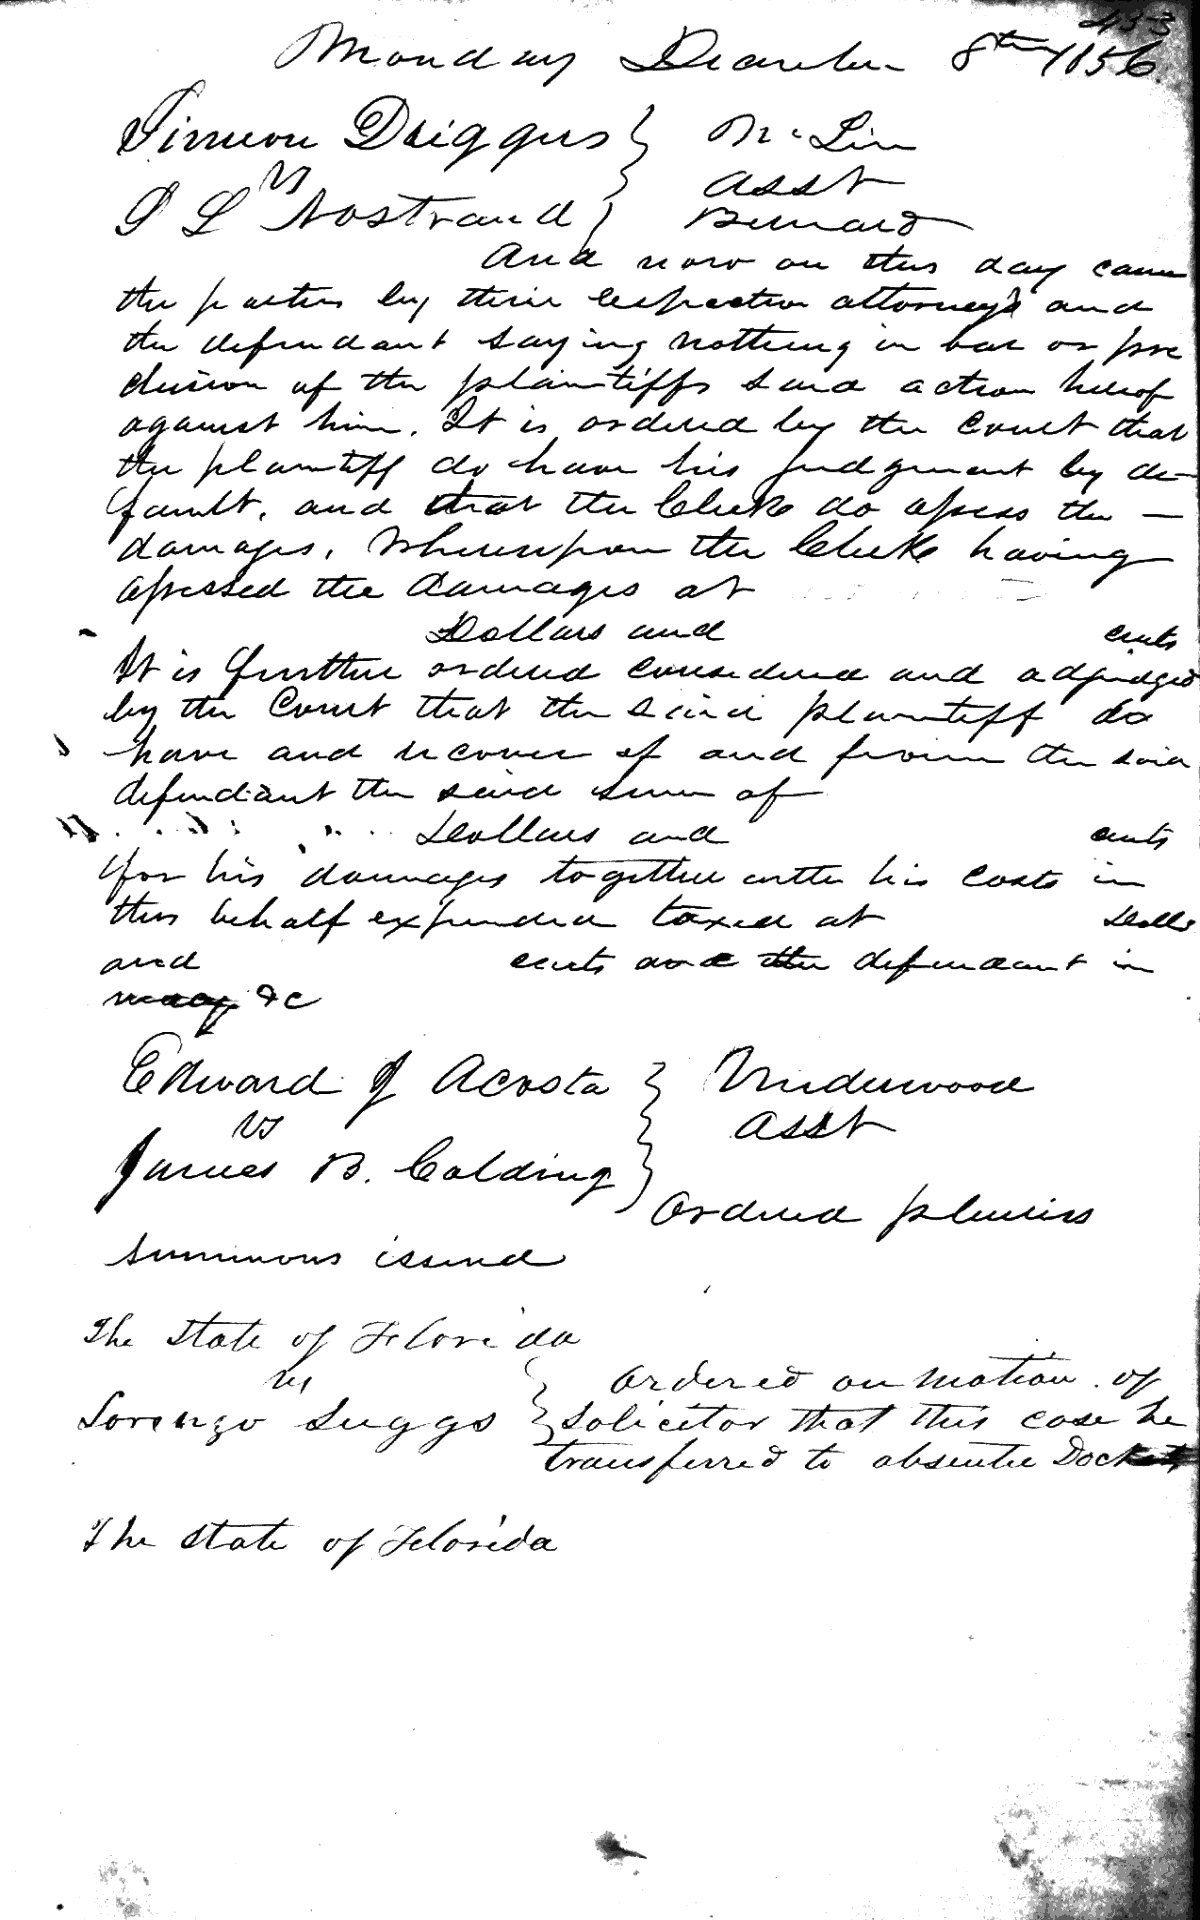 453
Monday December 8th 1856
Simeon Driggers } McLin
vs } Asst
S L Nostrand } Bernard
And now on this day came
the parties by their respective attorneys and
the defendant saying nothing in bar or pre
clusion of the plaintiffs said action hereof
against him. It is ordered by the Court that
the plaintiff do have his judgment by de-
fault, and that the Clerk do assess the —
damages, Whereupon the Clerk having
assessed the damages at
Dollars and cents
It is further ordered considered and adjudged
by the Court that the said plaintiff do
have and recover of and from the said
defendant the said sum of
Dollars and cents
for his damages together with his costs in
this behalf expended taxed at Dolls
and cents and the defendant in
mercy &c
Edward J Acosta } Underwood
vs } Asst
James B. Colding }
Ordered pluries
summons issued
The State of Florida
vs } Ordered on motion of
Lorenzo Suggs } Solicitor that this case be
transferred to absentee Docket
The State of Florida